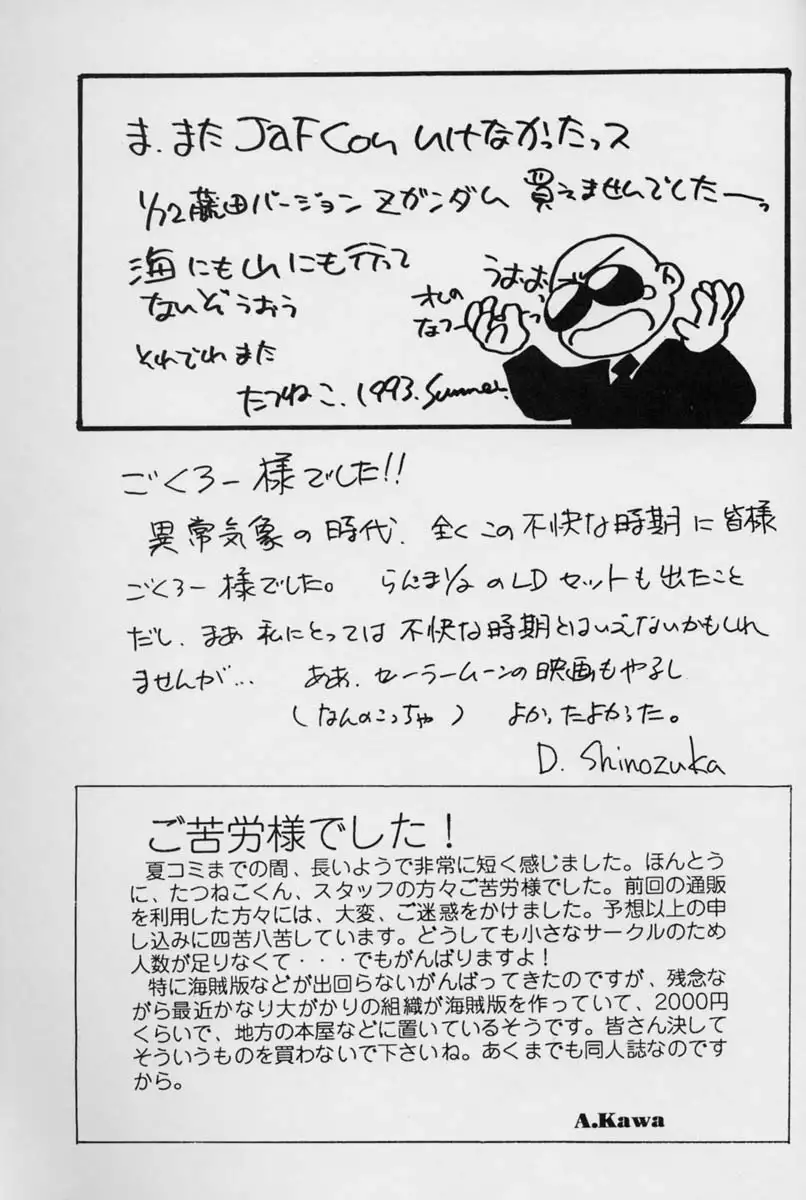 ま、また JaFCon いけなかったっス
1/72藤田バージョン Zガンダム 買えませんでしたーっ
海にも山にも行って
ないぞうおう
うおおっ
オレの
なつーっ
それでわまた
たつねこ. 1993. Summer.
ごくろー様でした!!
異常気象の時代、全くこの不快な時期に皆様
ごくろー様でした。 らんま1/2のLDセットも出たこと
だし、まあ私にとっては不快な時期とはいえないかもしれ
ませんが… ああ、セーラームーンの映画もやるし
(なんのこっちゃ) よかったよかった。
D. Shinozuka
ご苦労様でした！
夏コミまでの間、長いようで非常に短く感じました。ほんとう
に、たつねこくん、スタッフの方々ご苦労様でした。前回の通販
を利用した方々には、大変、ご迷惑をかけました。予想以上の申
し込みに四苦八苦しています。どうしても小さなサークルのため
人数が足りなくて・・・でもがんばりますよ！
特に海賊版などが出回らないがんばってきたのですが、残念な
がら最近かなり大がかりの組織が海賊版を作っていて、2000円
くらいで、地方の本屋などに置いているそうです。皆さん決して
そういうものを買わないで下さいね。あくまでも同人誌なのです
から。
A.Kawa